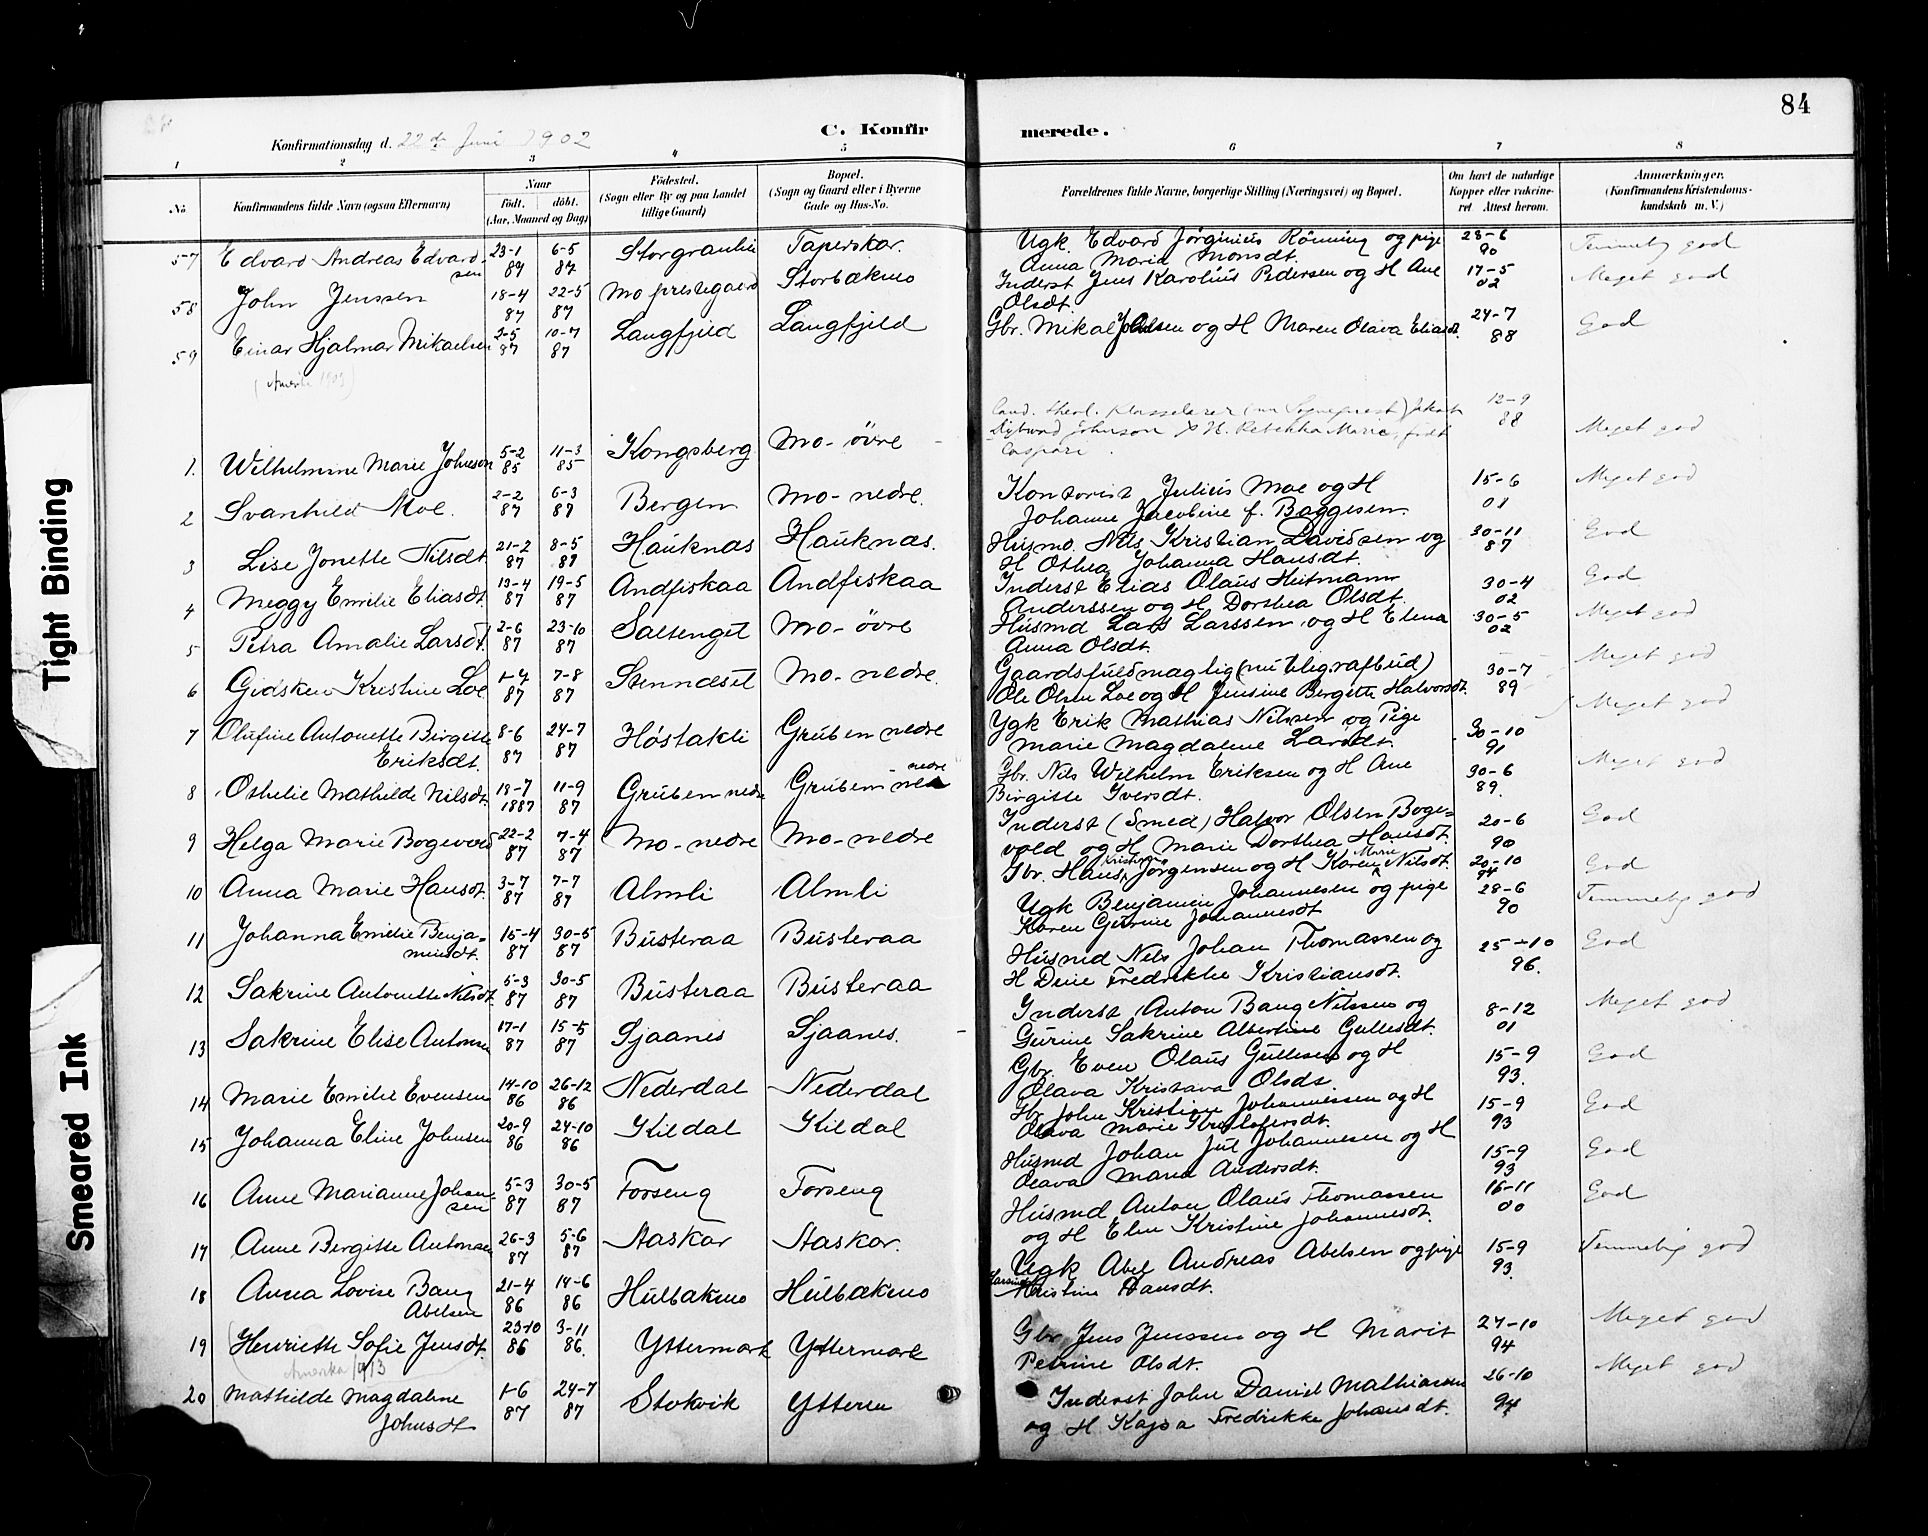 84
Konfirmationsdag d. 22de Juni 1902
C. Konfirmerede.
1 2 3 4 5 6 7 8
No.
Konfirmandens fulde Navn (ogsaa Efternavn)
Naar
født. døbt.
(Aar, Maaned og Dag)
Fødested.
(Sogn eller By og paa Landet
tillige Gaard)
Bopæl.
(Sogn og Gaard eller i Byerne
Gade og Hus-No.
Forældrenes fulde Navne, borgerlige Stilling (Næringsvei) og Bopæl.
Om havt de naturlige
Kopper eller vakcine-
ret. Attest herom.
Anmærkninger.
(Konfirmandens Kristendoms-
kundskab m. V.)
57 Edvard Andreas Edvardsen 23-1 87 6-5 87 Taperskar. Ugk. Edvard Jörginius Rönning og pige Anna Maria Monsdt. 28-6 90 Temmelig god
58 John Jenssen 18-4 87 22-5 87 Mo prestegaard Storbækmo Inderst Jens Karolius Pedersen og H Ane Olsdt 17-5 02 Meget god
59 Einar Hjalmar Mikaelsen 2-5 87 10-7 87 Langfjeld Langfjeld Gbr. Mikal og H Maren Olava Eliasdt. 24-7 88 God
(Amerika 1903)
1. Wilhelmine Marie Johnson 5-2 85 11-3 85 Kongsberg Mo-övre Cand. theol. Klasselærer (nu Sogneprest) Jakob Johnson & H. Rebekka Marie, født Caspari. 12-9 88 Meget god
2 Svanhild Moe. 2-2 87 6-3 87 Bergen Mo-nedre. Kontorist Julius Moe og H Johanne Jacobine f. Baggesen. 15-6 01 Meget god
3 Lise Jonette Nilsdt 21-2 87 8-5 87 Hauknæs Hauknæs. Husmd. Nils Kristian Davidsen og H Othea Johanna Hansdt. 30-11 87 God
4 Meggy Emilie Eliasdt. 13-4 87 19-5 87 Andfiskaa Andfiskaa Inderst Elias Olaus Heitmann Anderssen og H Dorthea Olsdt. 30-4 02 God
5 Petra Amalie Larsdt. 2-6 87 23-10 87 Saltenget Mo-övre Husmd Lars Larssen og H Elena Anna Olsdt. 30-5 02 Meget god
6 Gidsken Kristine Loe 1-4 87 7-8 87 Stenneset Mo-nedre. Gaardsfuldmægtig (nu telegrafbud) Ole Olsen Loe og H Jensine Bergette Halvorsdt. 30-7 89 Meget god
7 Olufine Antonette Birgitte Eriksdt. 8-6 87 24-7 87 Høstakli Gruben nedre Ygk Erik Mathias Nilssen og Pige Marie Magdalene Larsdt. 30-10 91 Meget god
8 Othelie Mathilde Nilsdt 18-7 1887 11-9 87 Gruben nedre Gruben nedre Gbr. Nils Wilhelm Eriksen og H Ane Birgitte Iversdt. 30-6 89. Meget god
9 Helga Marie Bogevold 22-2 87 7-4 87 Mo-nedre Mo-nedre Inderst (Smed) Halvor Olsen Bogevold og H Marie Dorthea Hansdt. 20-6 90 God
10 Anna Marie Hansdt. 3-7 87 7-7 87 Almli Almli Gbr. Hans Kristian Jørgensen og H Karen Marie Nilsdt. 20-10 94 God
11 Johanna Emilie Benja-
minsdt. 15-4 87 30-5 87 Busteraa Busteraa Ugk Benjamin Johannesen og pige Karen Gurine Johannesdt 28-6 90 Temmelig god
12 Sakrine Antonette Nilsdt 5-3 87 30-5 87 Busteraa Busteraa Husmd Nils Johan Thomassen og H Dine Fredrikke Kristiansdt. 25-10 96. God
13 Sakrine Elise Antonsen 17-1 87 15-5 87 Sjaanes Sjaanes. Inderst Anton Bang Nilssen og Gurine Sakrine Albertine Gullesdt. 8-12 01 Meget god
14 Marie Emilie Evensen 14-10 86 26-12 86 Nederdal Nederdal Gbr. Even Olaus Gullesen og H Olava Kristava Olsdt. 15-9 93. God
15 Johanna Eline Johnsen 20-9 86 24-10 86 Kildal Kildal Gbr John Kristian Johannessen og H Olava Marie Kristofersdt. 15-9 93 God
16 Anne Marianne Johansen 5-3 87 30-5 87 Forseng Forseng Husmd Johan Jul Johannesen og H Olava Maria Andersdt. 15-9 93 God
17 Anne Bergitte Antonsen 26-3 87 5-6 87 Aaskar Aaskar. Husmd Anton Olaus Thomassen og H Elen Kristine Johannesdt. 16-11 00 God
18 Anna Lovise Bang Abelsen 21-4 86 14-6 86 Hulbækmo Hulbækmo Ugk Abel Andreas Abelsen og pige Kristine Hansdt. 15-9 93. Temmelig god
19 Henriette Sofie Jensdt. 23-10 86 3-11 86. Yttermark Yttermark Gbr Jens Jenssen og H Marit Petrine Olsdt. 27-10 94 Meget god
Amerika 1913
20 Mathilde Magdalene Johnsdt 1-6 87 24-7 87 Stokvik Ytteren Inderst John Daniel Mathiassen og H Kajsa Fredrikke Johansdt. 26-10 94 Meget god
Tight Binding
Smeared Ink